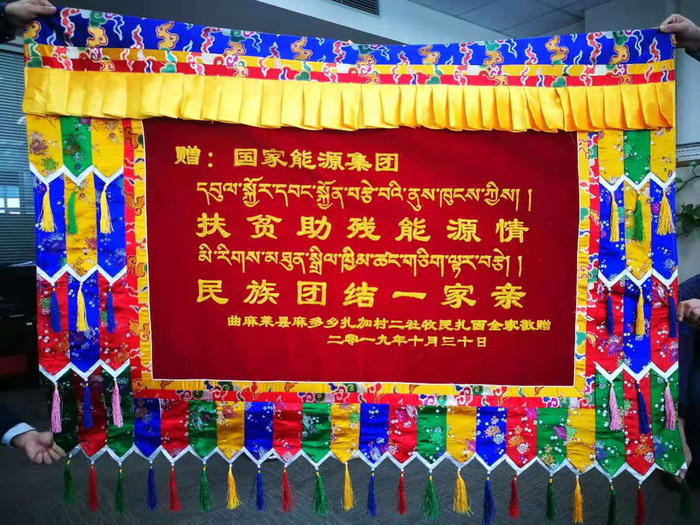 赠：国家能源集团
དབུལ་སྐྱོར་དབང་སྐྱོན་བརྩེ་བའི་ནུས་ཁུངས་ཀྱིས། །
扶贫助残能源情
མི་རིགས་མཐུན་སྒྲིལ་ཁྱིམ་ཚང་གཅིག་ལྟར་བརྩེ། །
民族团结一家亲
曲麻莱县麻多乡扎加村二社牧民扎西全家敬赠
二零一九年十月三十日